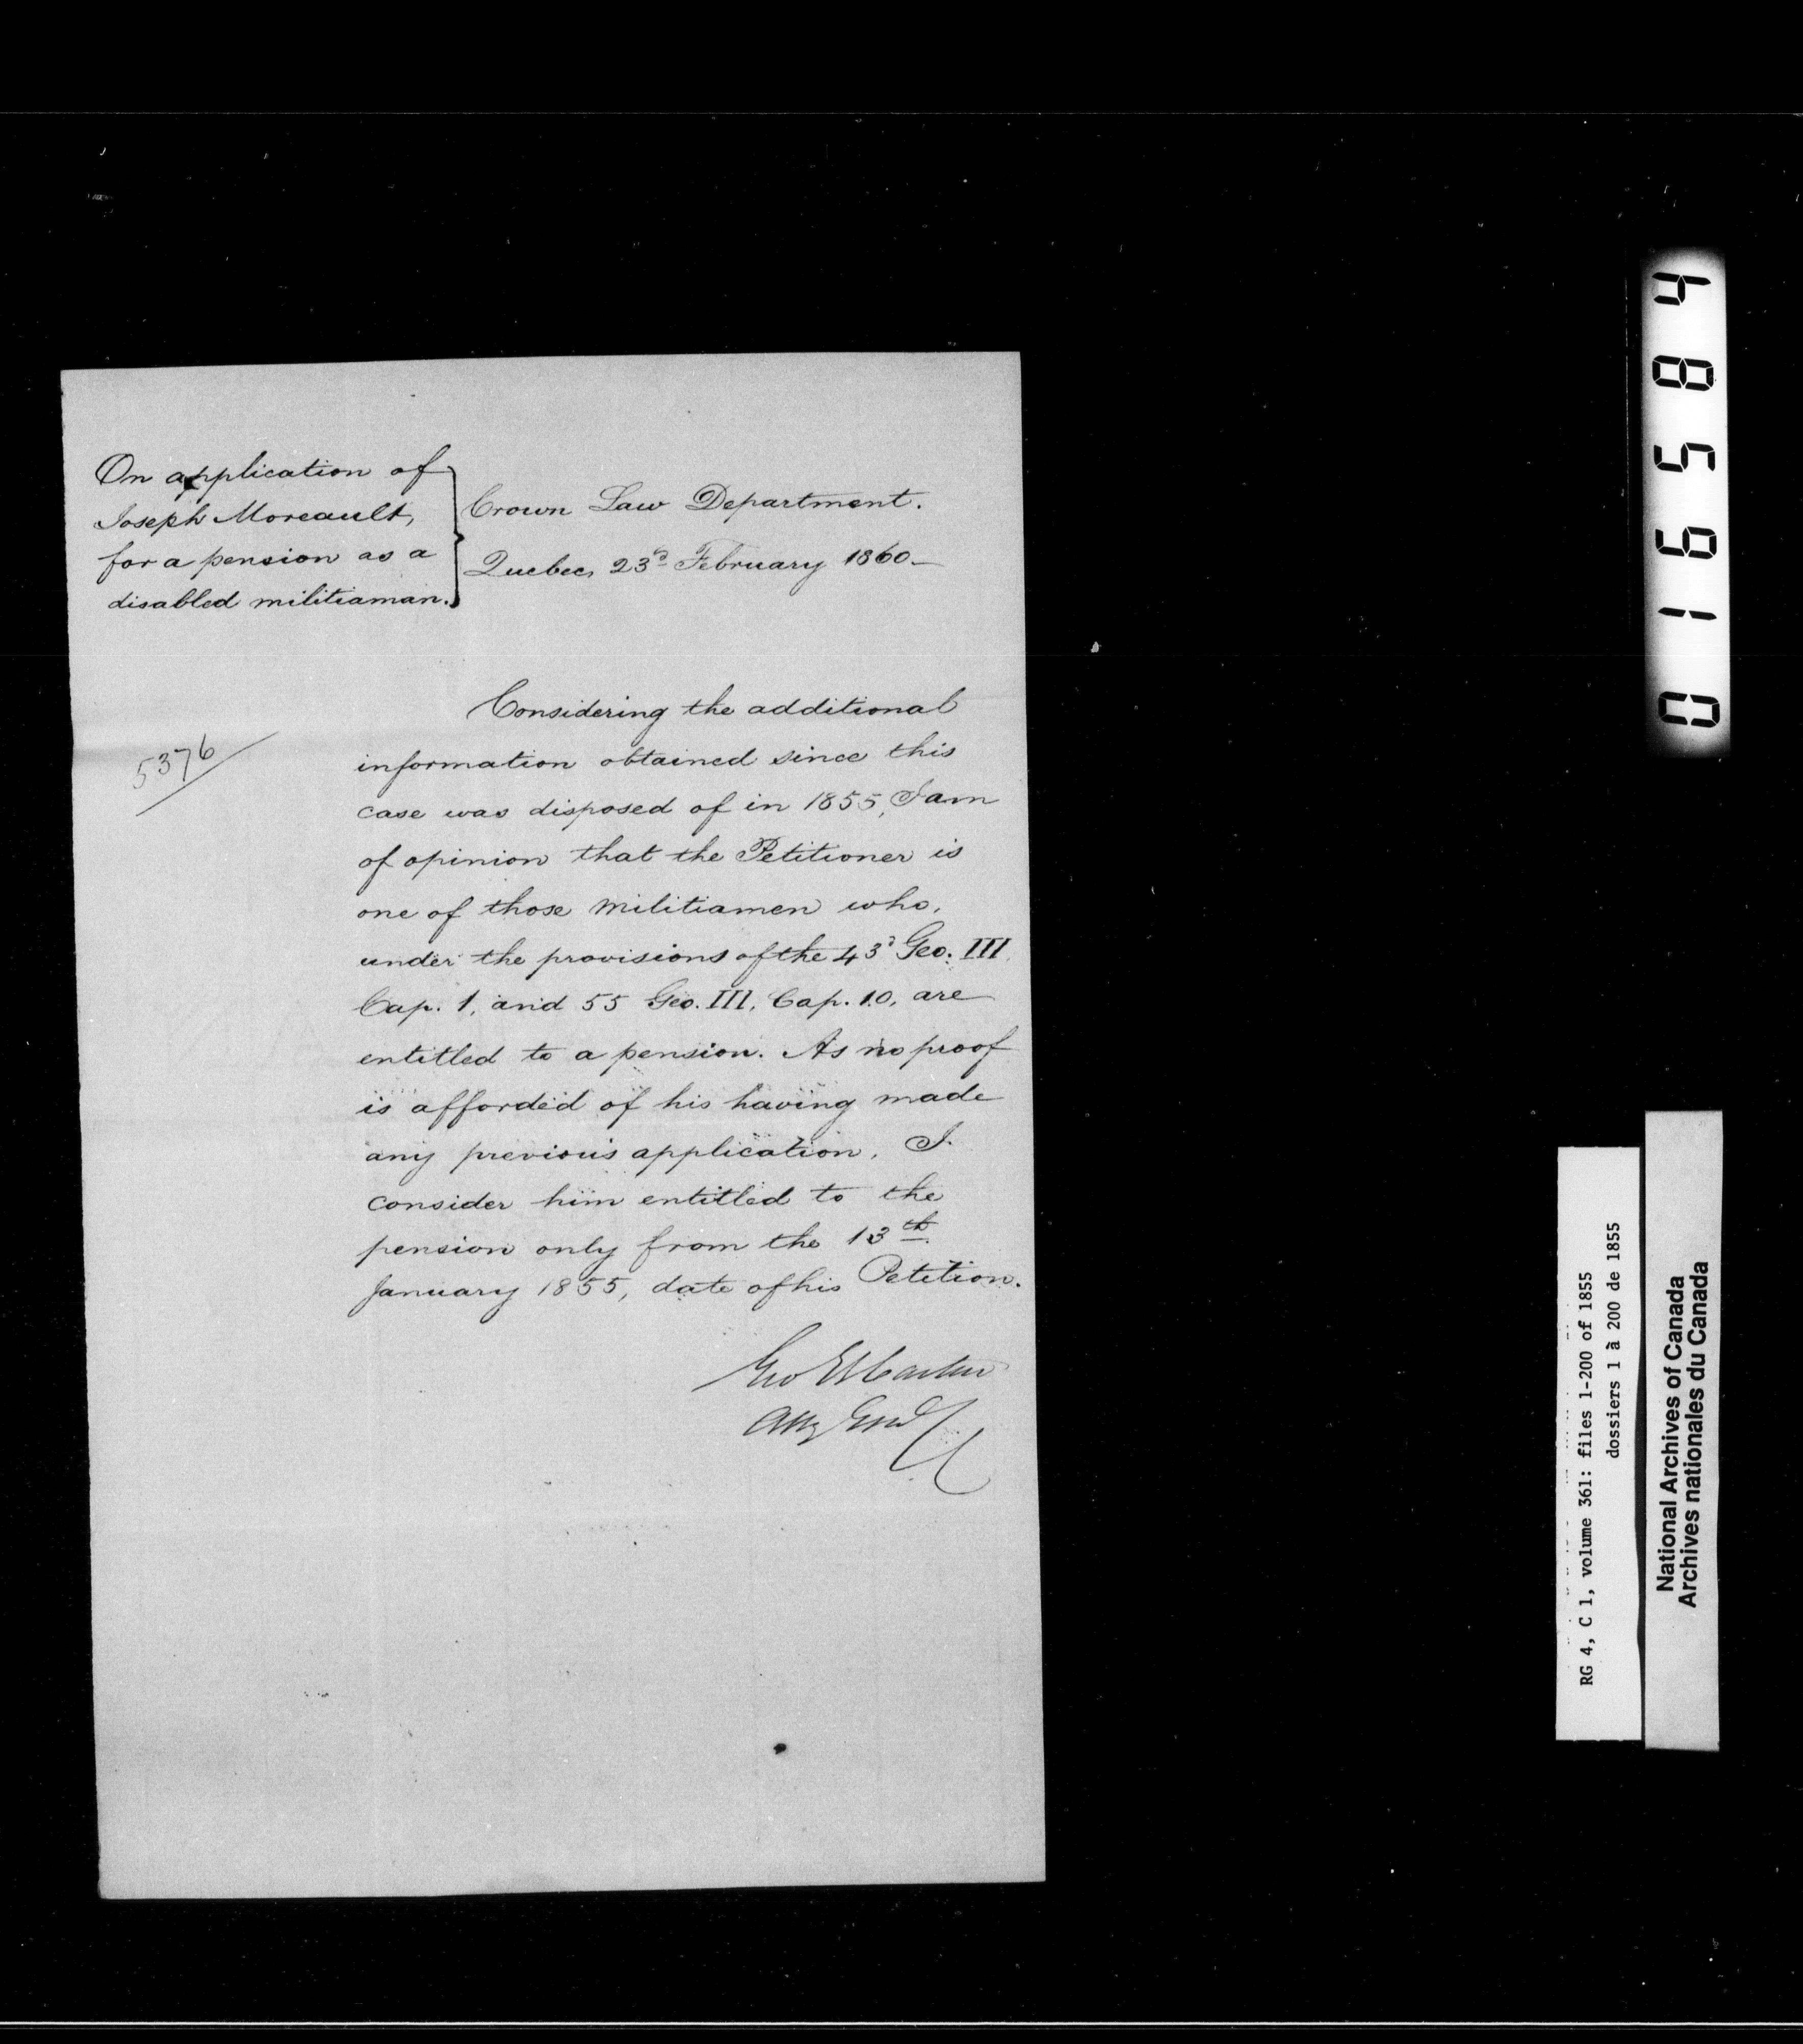 On application of
Joseph Moreault,
for a pension as a
disabled militiaman.
Crown Law Department.
Quebec, 23d February 1860 –
5376
Considering the additional
information obtained since this
case was disposed of in 1855, I am
of opinion that the Petitioner is
one of those militiamen who,
under the provisions of the 43d Geo. III.
Cap. 1, and 55 Geo. III, Cap. 10, are
entitled to a pension. As no proof
is afforded of his having made
any previous application, I
consider him entitled to the
pension only from the 13th
January 1855, date of his Petition.
Geo Et Cartier
Atty Genl
016584
RG 4, C 1, volume 361: files 1-200 of 1855
dossiers 1 à 200 de 1855
National Archives of Canada
Archives nationales du Canada